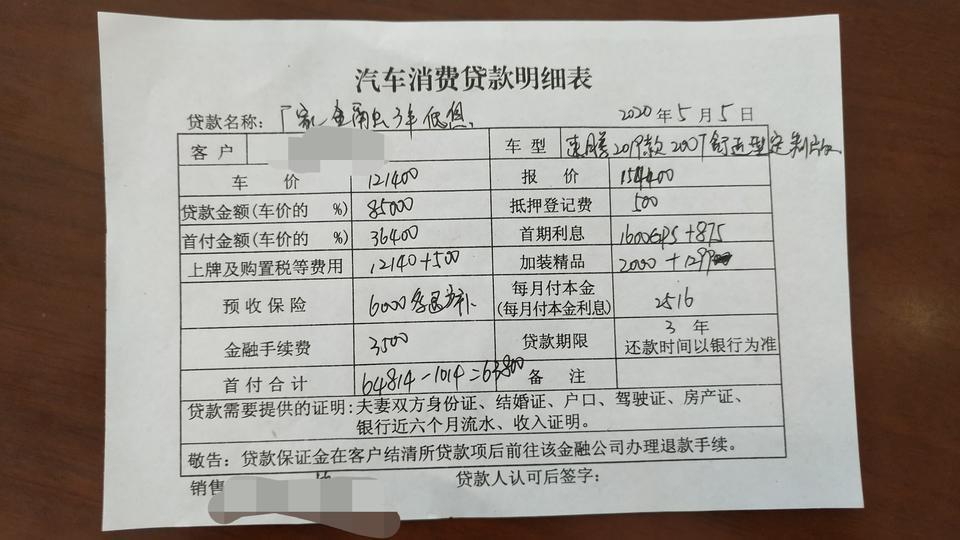 汽车消费贷款明细表
贷款名称: 厂家金融3年低息 2020年5月5日
客户 车型 速腾2019款200T舒适型定制版
车价 121400 报价 154400
贷款金额(车价的 %) 85000 抵押登记费 500
首付金额(车价的 %) 36400 首期利息 1600GPS+875
上牌及购置税等费用 12140+500 加装精品 2000+1299
预收保险 6000多退少补 每月付本金
(每月付本金利息) 2516
金融手续费 3500 贷款期限 3年
还款时间以银行为准
首付合计 64814-1014=63800 备注
贷款需要提供的证明:夫妻双方身份证、结婚证、户口、驾驶证、房产证、
银行近六个月流水、收入证明。
敬告:贷款保证金在客户结清所贷款项后前往该金融公司办理退款手续。
销售 贷款人认可后签字: